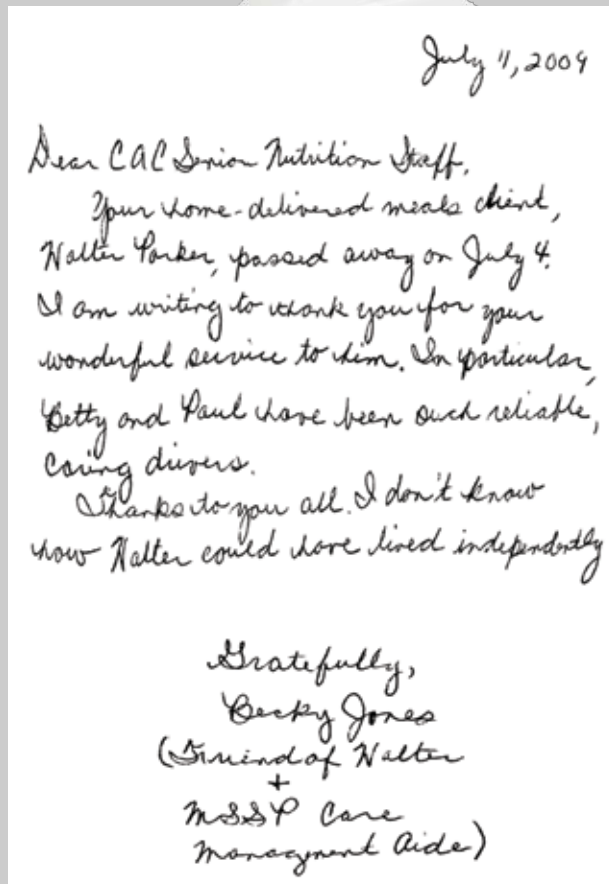 July 11, 2009
Dear CAC Senior Nutrition Staff,
Your home-delivered meals client,
Walter Parker, passed away on July 4.
I am writing to thank you for your
wonderful service to him. In particular,
Betty and Paul have been such reliable,
caring drivers.
Thanks to you all. I don't know
how Walter could have lived independently
Gratefully,
Becky Jones
(Friend of Walter
+
MSSP Care
Management Aide)